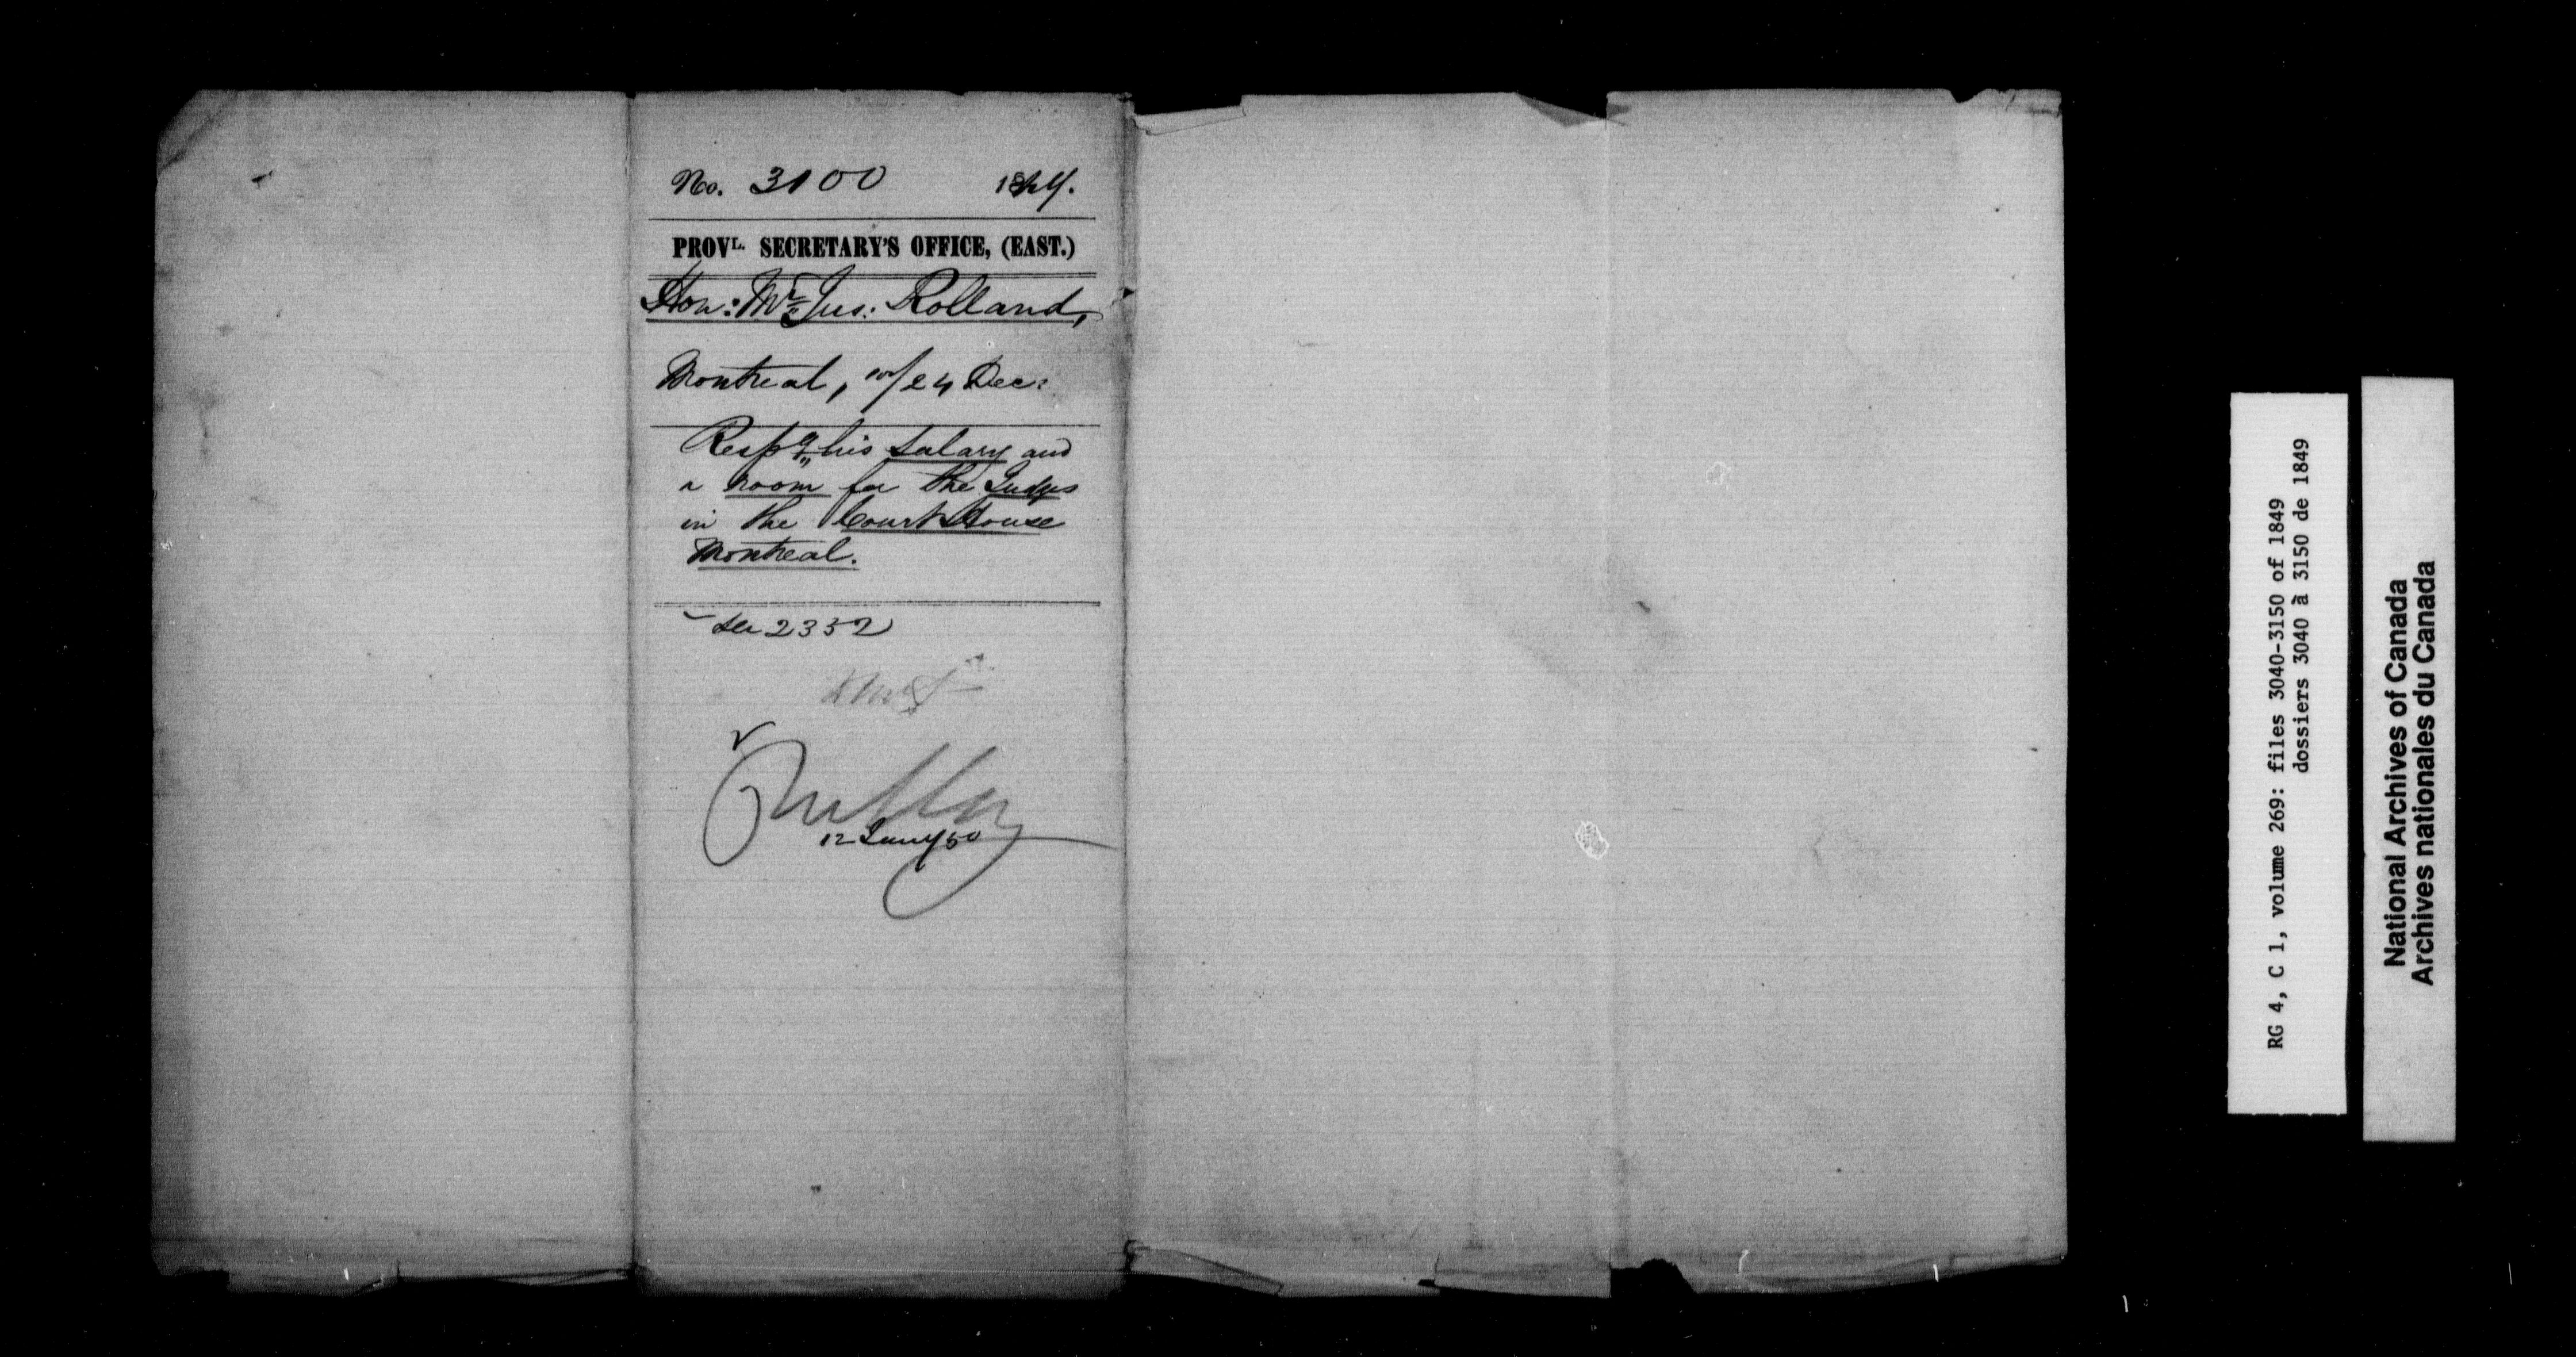 No. 3100 1849.
PROVL. SECRETARY'S OFFICE, (EAST.)
Hon: Mr Jus: Rolland,
Montreal, 24 Dec:
Respg his Salary and
a room for the Judges
in the Court House
Montreal.
2332
12 Jany 50
RG 4, C 1, volume 269: files 3040-3150 of 1849
dossiers 3040 à 3150 de 1849
National Archives of Canada
Archives nationales du Canada